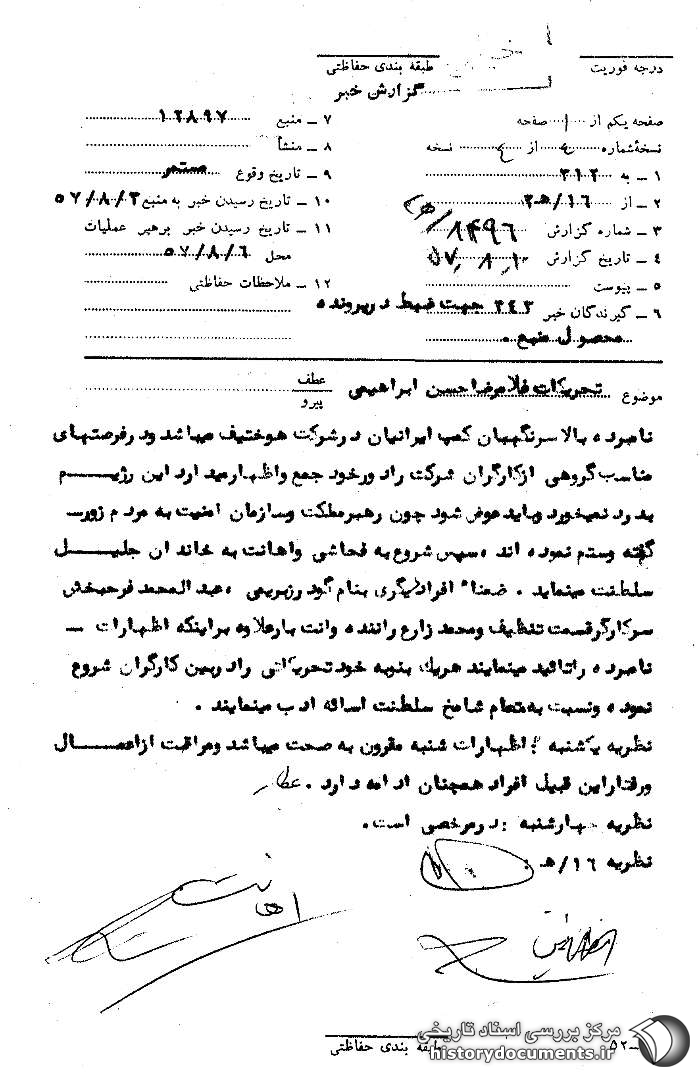 درجه فوریت
طبقه بندی حفاظتی
گزارش خبر
صفحه یکم از ۱ صفحه
نسخه شماره از نسخه
۱ ـ به ۳۱۲
۲ ـ از ۱۶/هـ۲
۳ ـ شماره گزارش ۸۴۹۶/هـ
۴ ـ تاریخ گزارش ۵۷٫۸٫۱۰
۵ ـ پیوست
۶ ـ گیرندگان خبر ۳۴۳ جهت ضبط در پرونده
محصول منبع .
۷ ـ منبع ۱۲۸۹۷
۸ ـ منشأ
۹ ـ تاریخ وقوع مستمر
۱۰ ـ تاریخ رسیدن خبر به منبع ۵۷/۸/۳
۱۱ ـ تاریخ رسیدن خبر برهبر عملیات
محل ۵۷/۸/۶
۱۲ ـ ملاحظات حفاظتی
موضوع تحریکات غلامرضا حسن ابراهیمی
عطف
پیرو
نامبرده بالا سرنگهبان کمپ ایرانیان در شرکت هوختیف میباشد و در فرصتهای
مناسب گروهی از کارگران شرکت را دور خود جمع و اظهار میدارد این رژیم
بدرد نمیخورد و باید عوض شود چون رهبر مملکت و سازمان امنیت به مردم زور
گفته و ستم نموده اند ، سپس شروع به فحاشی و اهانت به خاندان جلیل
سلطنت مینماید . ضمناً افراد دیگری بنام گودرز بریمی ، عبدالمحمد فرحبخش
سرکارگر قسمت تنظیف و محمد زارع راننده وانت بار علاوه بر اینکه اظهارات ـ
نامبرده را تائید مینمایند هریک بنوبه خود تحریکاتی را در بین کارگران شروع
نموده و نسبت به مقام شامخ سلطنت اسائه ادب مینمایند .
نظریه یکشنبه : اظهارات شنبه مقرون به صحت میباشد و مراقبت از اعمال
و رفتار این قبیل افراد همچنان ادامه دارد . عطار
نظریه چهارشنبه : در مرخصی است .
نظریه ۱۶/هـ :
طبقه بندی حفاظتی
۵۲ـ
مرکز بررسی اسناد تاریخی
historydocuments.ir